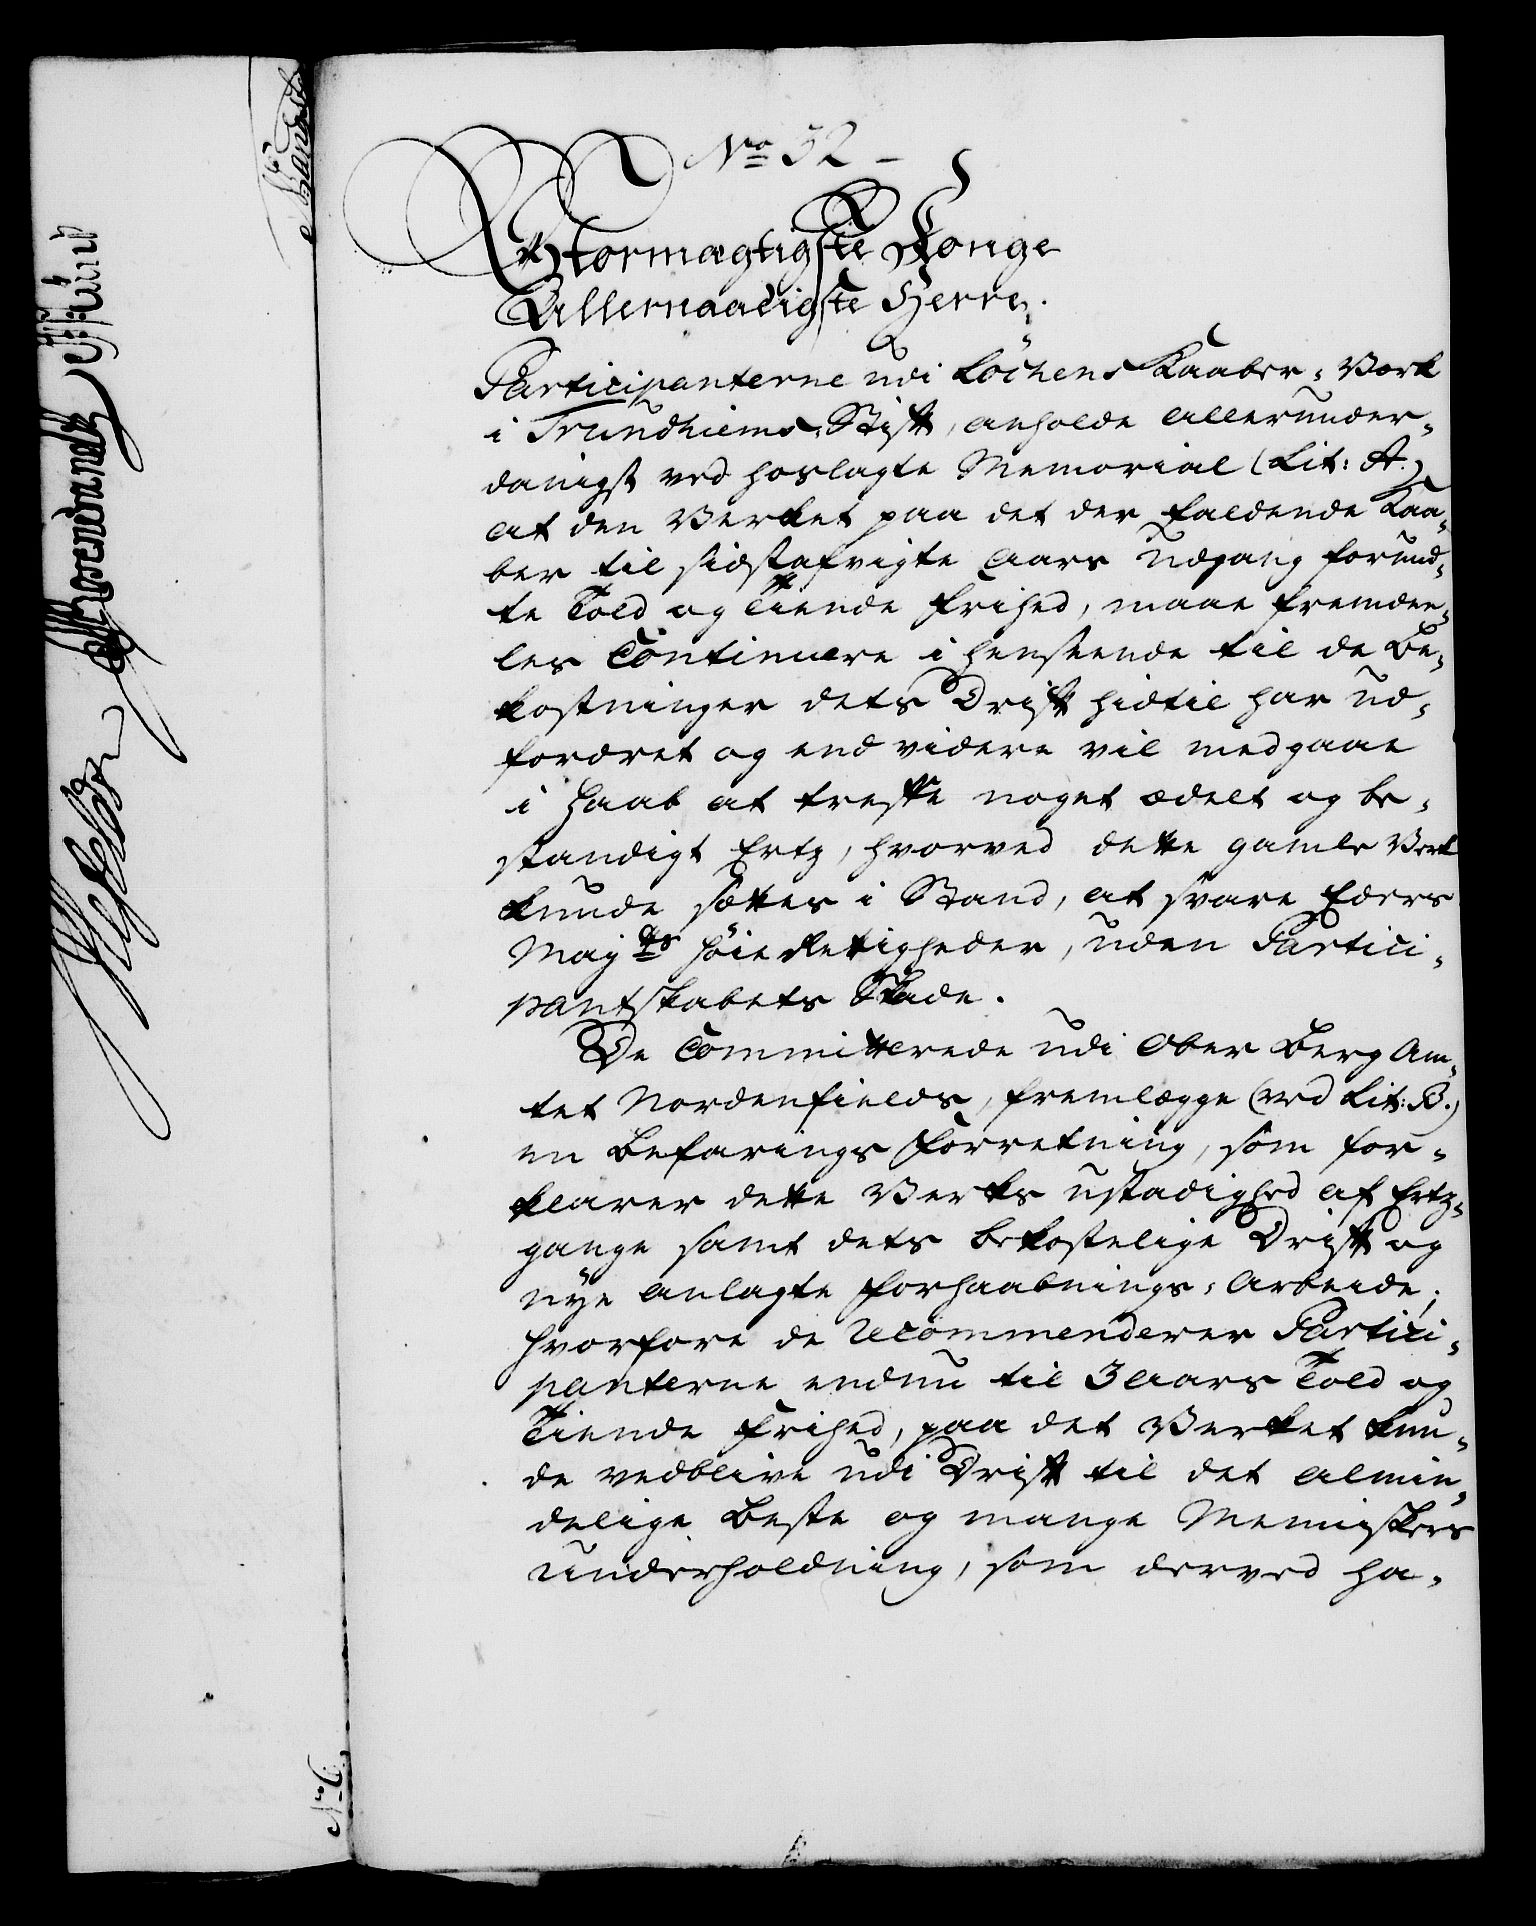 No 32 -
Stormægtigste Konge
Allernaadigste Herre.
Participanterne udi Löchens Kaaber-Værk
i Trundhiems Stift, anholde allerunder-
danigst ved hoslagte Memorial (Lit: A.)
at den Verket paa det der faldende Kaa-
ber til sidstafvigte Aars Udgang forund-
te Told og Tiende frihed, maae fremdee-
les Continuere i henseende til de Be-
kostninger dets Drift hidtil har ud-
fordret og end videre vil medgaae
i Haab at treffe noget ædelt og be-
standigt Ertz, hvorved dette gamle Verk
kunde sættes i Stand, at svare Eders
Majts höie Rettigheder, uden Partici-
pantskabets Skade.
De Committerede udi Ober Berg Am-
tet Nordenfields, fremlægge (ved Lit: B.)
en Befarings Forretning, som for-
klarer dette Verks ustadighed af Ertz-
gange samt dets bekostelige Drift og
nÿe anlagte Forhaabnings-Arbeide;
hvorfore de Recommenderer Partici-
panterne endnu til 3 Aars Told og
Tiende frihed, paa det Verket kun-
de vedblive udi Drift til det almin-
delige Beste og mange Menniskers
Underholdning, som derved ha-
No 6.